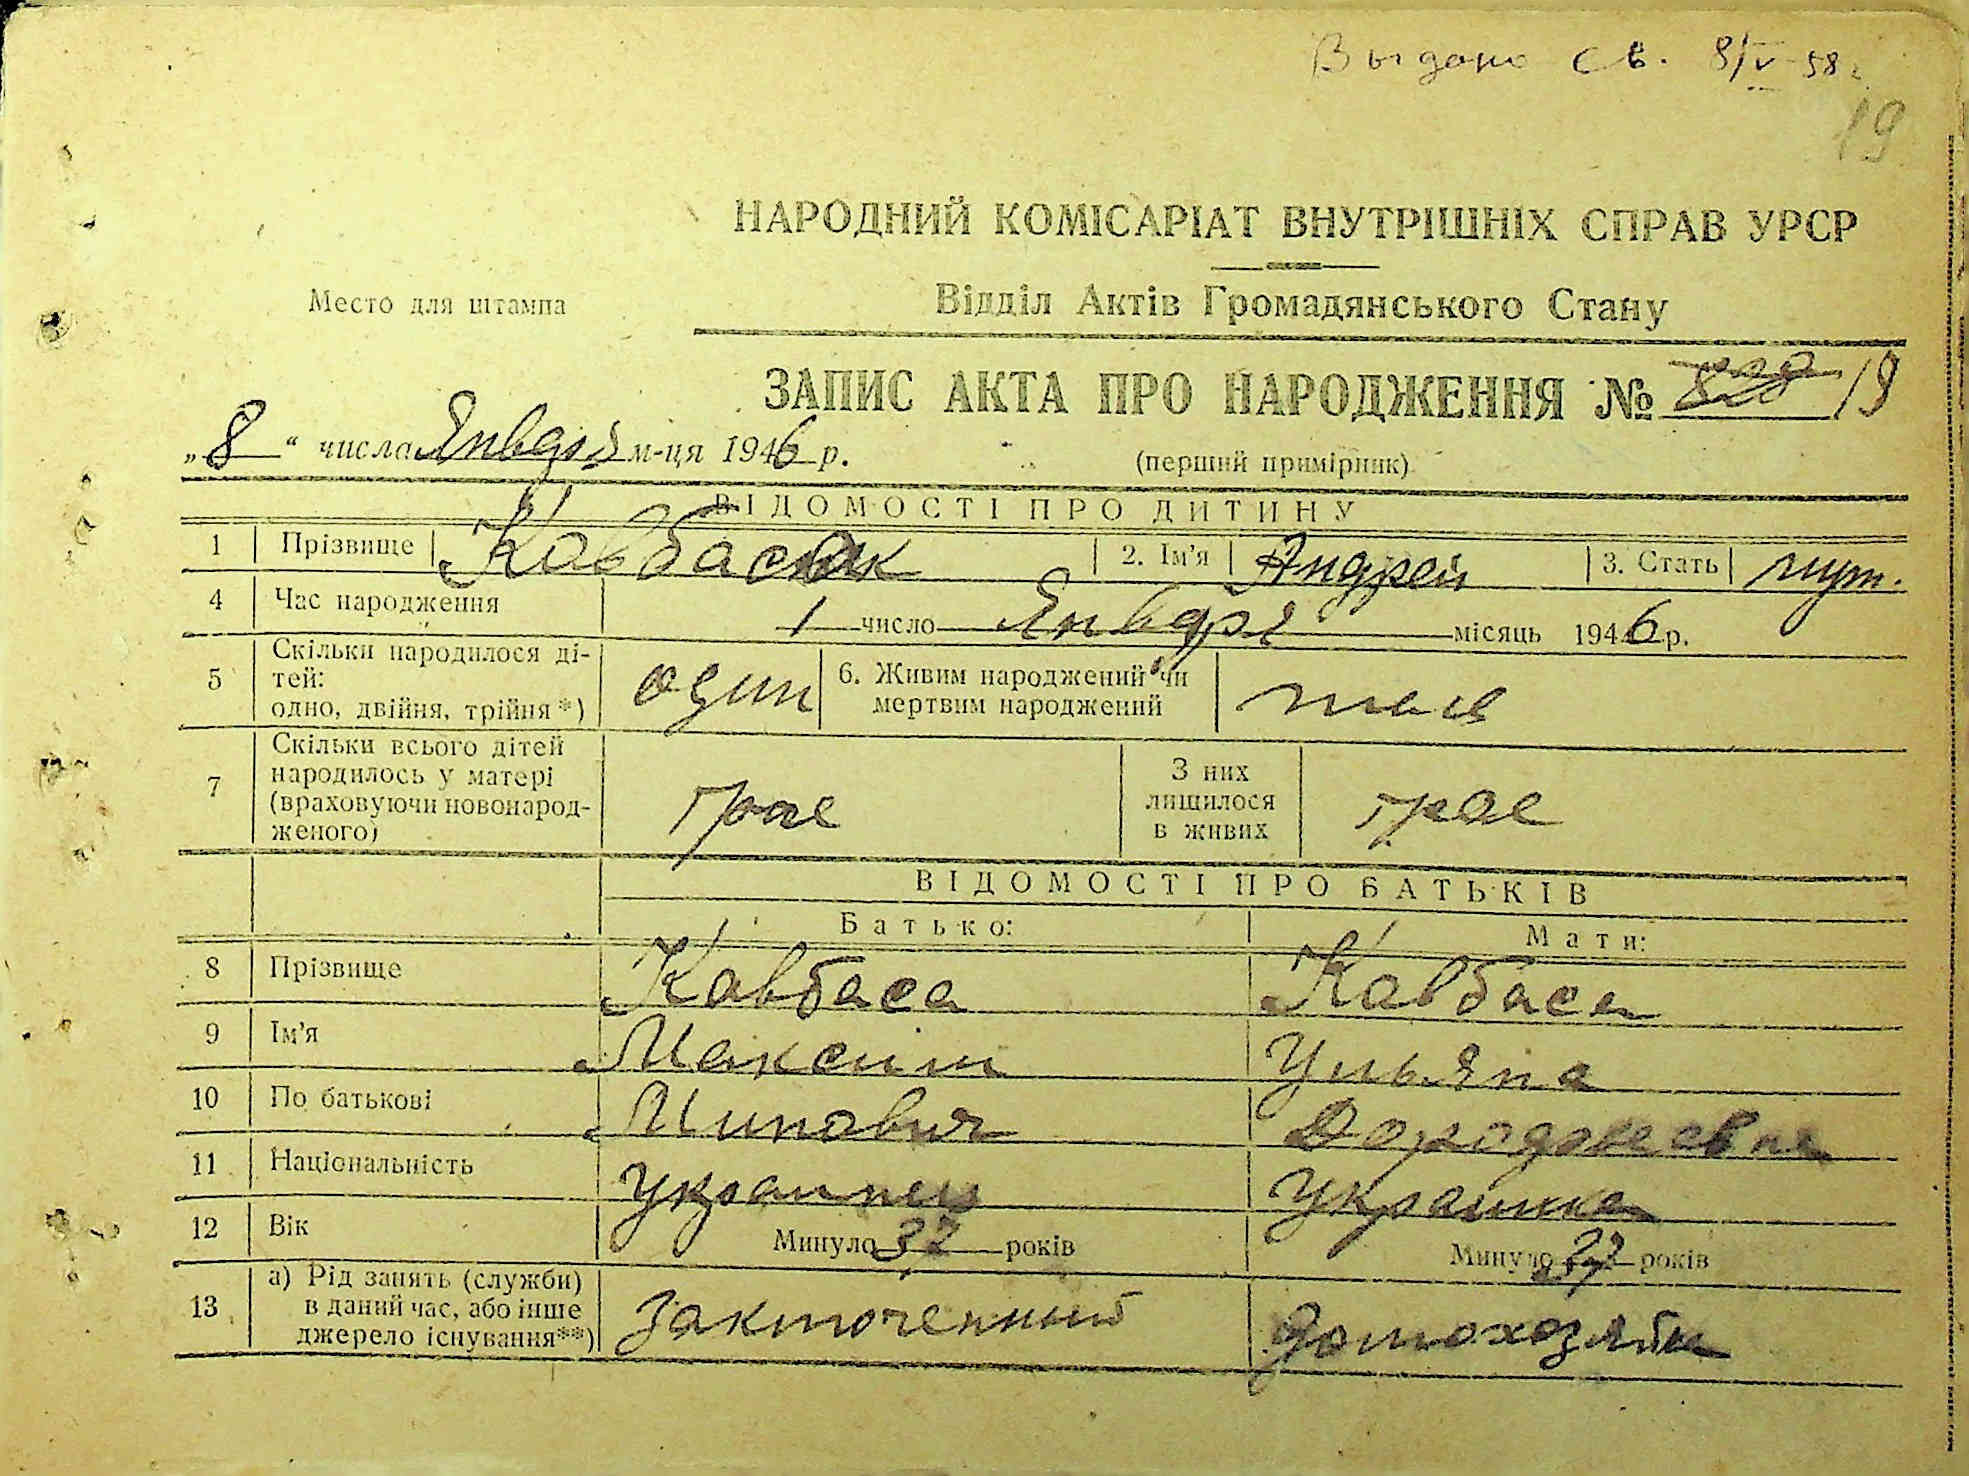 Выдано св. 8/V-58г.
19
НАРОДНИЙ КОМІСАРІАТ ВНУТРІШНІХ СПРАВ УРСР
Место для штампа
Відділ Актів Громадянського Стану
ЗАПИС АКТА ПРО НАРОДЖЕННЯ № 19
„8“ числа Января м-ця 1946 р.
(перший примірник)
ВІДОМОСТІ ПРО ДИТИНУ
1 Прізвище 2. Ім'я Андрей 3. Стать муж.
4 Час народження 1 число Января місяць 1946 р.
5 Скільки народилося ді-
тей:
одно, двійня, трійня*) один 6. Живим народжений чи
мертвим народжений
7 Скільки всього дітей
народилось у матері
(враховуючи новонарод-
женого) трое З них
лишилося
в живих трое
ВІДОМОСТІ ПРО БАТЬКІВ
Батько: Мати:
8 Прізвище Кавбаса Кавбаса
9 Ім'я Максим Ульяна
10 По батькові
11 Національність Украинец Украинка
12 Вік Минуло 37 років Минуло 37 років
13 а) Рід занять (служби)
в даний час, або інше
джерело існування**) Заключенный домохозяйка